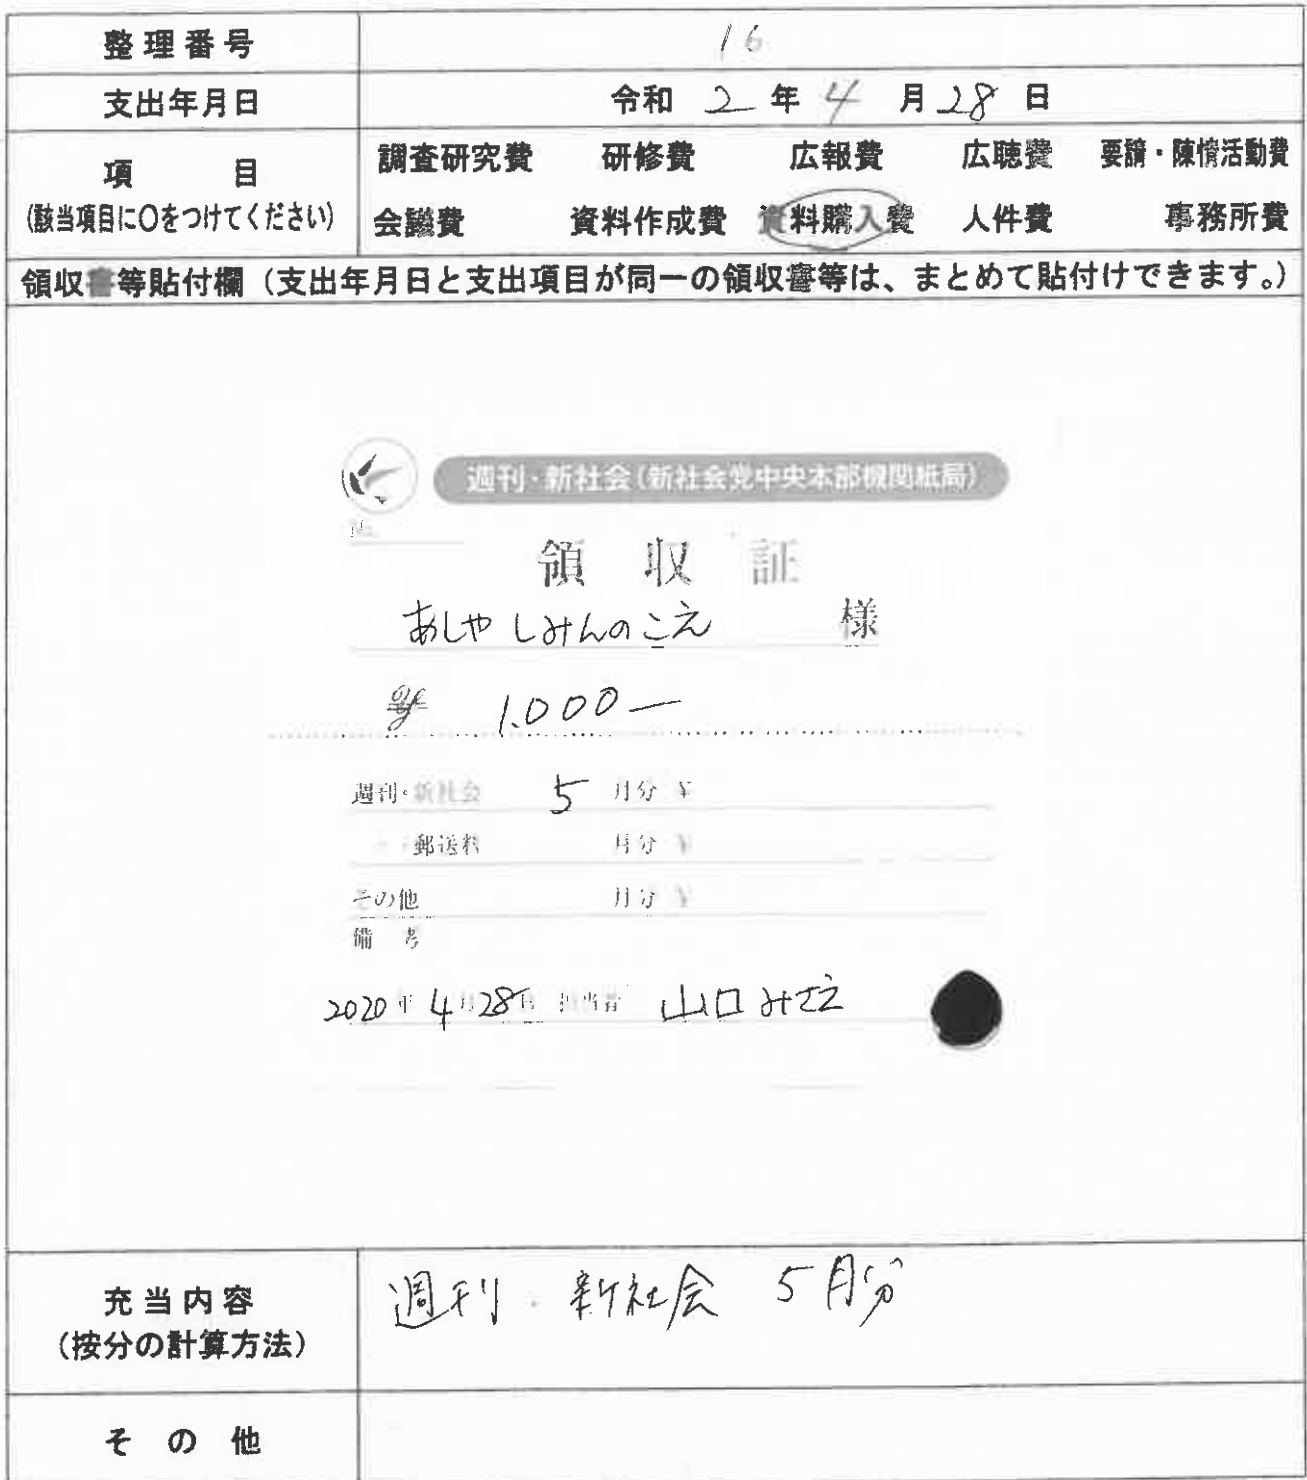 整理番号 16
支出年月日 令和 2 年 4 月 28 日
項 目
(該当項目に○をつけてください)
調査研究費 研修費 広報費 広聴費 要請・陳情活動費
会議費 資料作成費 資料購入費 人件費 事務所費
領収書等貼付欄(支出年月日と支出項目が同一の領収書等は、まとめて貼付けできます。)
週刊・新社会(新社会党中央本部機関紙局)
No.
領収証
あしやしみんのこえ 様
¥ 1.000―
週刊・新社会 5 月分 ¥
郵送料 月分 ¥
その他 月分 ¥
備考
2020年 4月28日 担当者 山口みさえ
充当内容
(按分の計算方法)
週刊・新社会 5月分
その他